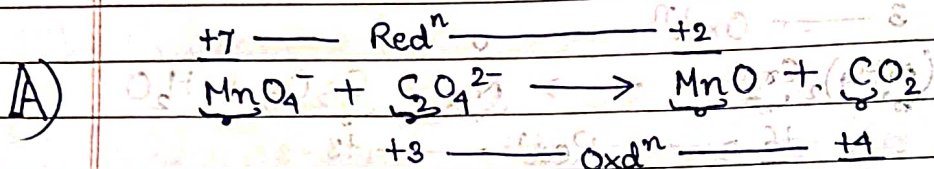 +7 —— Redⁿ —— +2
A) MnO₄⁻ + C₂O₄²⁻ ⟶ MnO + CO₂
+3 —— Oxdⁿ —— +4